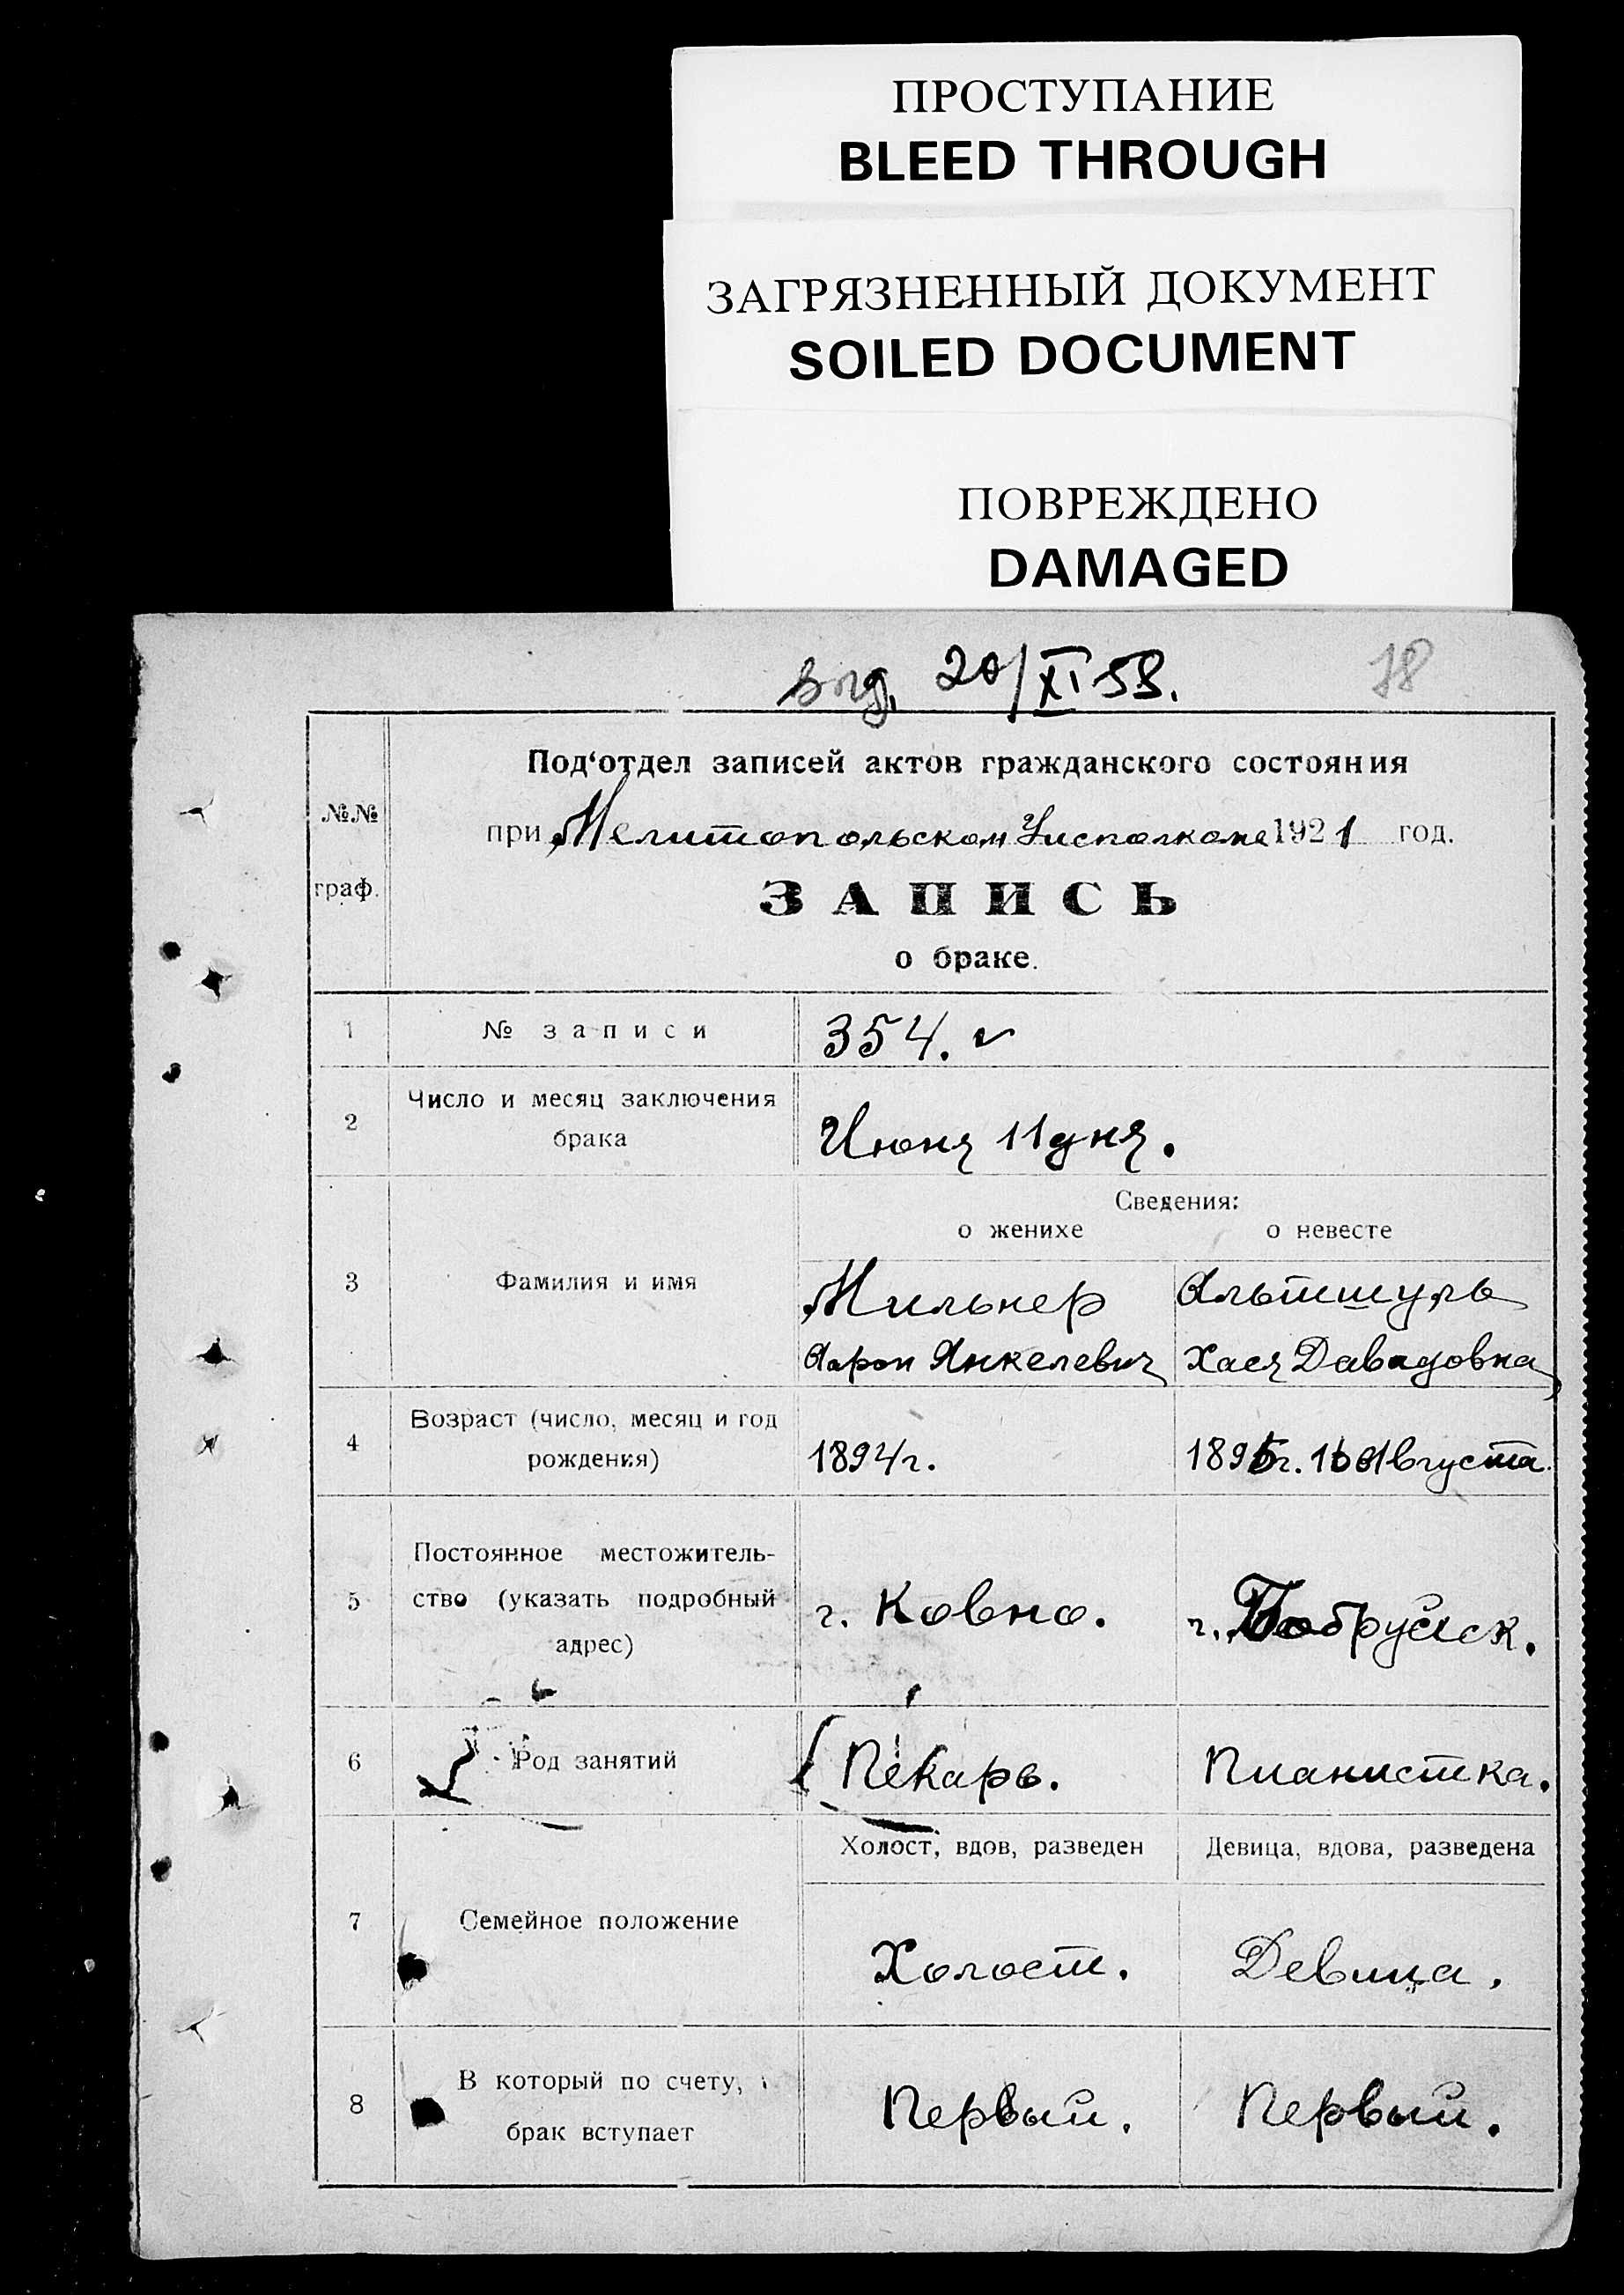 ПРОСТУПАНИЕ
BLEED THROUGH
ЗАГРЯЗНЕННЫЙ ДОКУМЕНТ
SOILED DOCUMENT
ПОВРЕЖДЕНО
DAMAGED
20/XI 58. 78
Под‘отдел записей актов гражданского состояния
№№
граф.
при Мелитопольском Уисполкоме 1921 год.
ЗАПИСЬ
о браке.
1 № записи 354.
2 Число и месяц заключения
брака Июня 11 дня.
Сведения:
о женихе о невесте
3 Фамилия и имя Мильнер Альтшуль
Аарон Янкелевич Хася Давидовна
4 Возраст (число, месяц и год
рождения) 1894 г. 1895 г. 16 Августа.
5 Постоянное местожитель-
ство (указать подробный
адрес) г. Ковно. г. Бобруйск.
6 Род занятий Пекарь. Пианистка.
Холост, вдов, разведен Девица, вдова, разведена
7 Семейное положение Холост. Девица.
8 В который по счету,
брак вступает Первый. Первый.